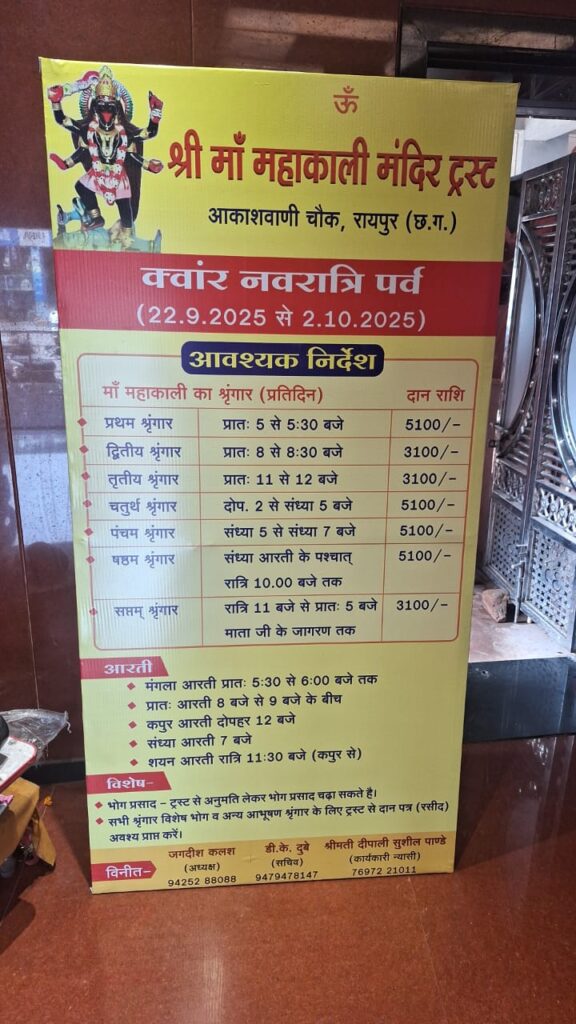 ॐ
श्री माँ महाकाली मंदिर ट्रस्ट
आकाशवाणी चौक, रायपुर (छ.ग.)
क्वांर नवरात्रि पर्व
(22.9.2025 से 2.10.2025)
आवश्यक निर्देश
माँ महाकाली का श्रृंगार (प्रतिदिन) दान राशि
प्रथम श्रृंगार प्रातः 5 से 5:30 बजे 5100/-
द्वितीय श्रृंगार प्रातः 8 से 8:30 बजे 3100/-
तृतीय श्रृंगार प्रातः 11 से 12 बजे 3100/-
चतुर्थ श्रृंगार दोप. 2 से संध्या 5 बजे 5100/-
पंचम श्रृंगार संध्या 5 से संध्या 7 बजे 5100/-
षष्ठम श्रृंगार संध्या आरती के पश्चात् 5100/-
रात्रि 10.00 बजे तक
सप्तम् श्रृंगार रात्रि 11 बजे से प्रातः 5 बजे 3100/-
माता जी के जागरण तक
आरती
मंगला आरती प्रातः 5:30 से 6:00 बजे तक
प्रातः आरती 8 बजे से 9 बजे के बीच
कपुर आरती दोपहर 12 बजे
संध्या आरती 7 बजे
शयन आरती रात्रि 11:30 बजे (कपुर से)
विशेष-
भोग प्रसाद - ट्रस्ट से अनुमति लेकर भोग प्रसाद चढ़ा सकते है।
सभी श्रृंगार विशेष भोग व अन्य आभूषण श्रृंगार के लिए ट्रस्ट से दान पत्र (रसीद)
अवश्य प्राप्त करें।
विनीत-
जगदीश कलश डी.के. दुबे श्रीमती दीपाली सुशील पाण्डे
(अध्यक्ष) (सचिव) (कार्यकारी न्यासी)
94252 88088 9479478147 76972 21011